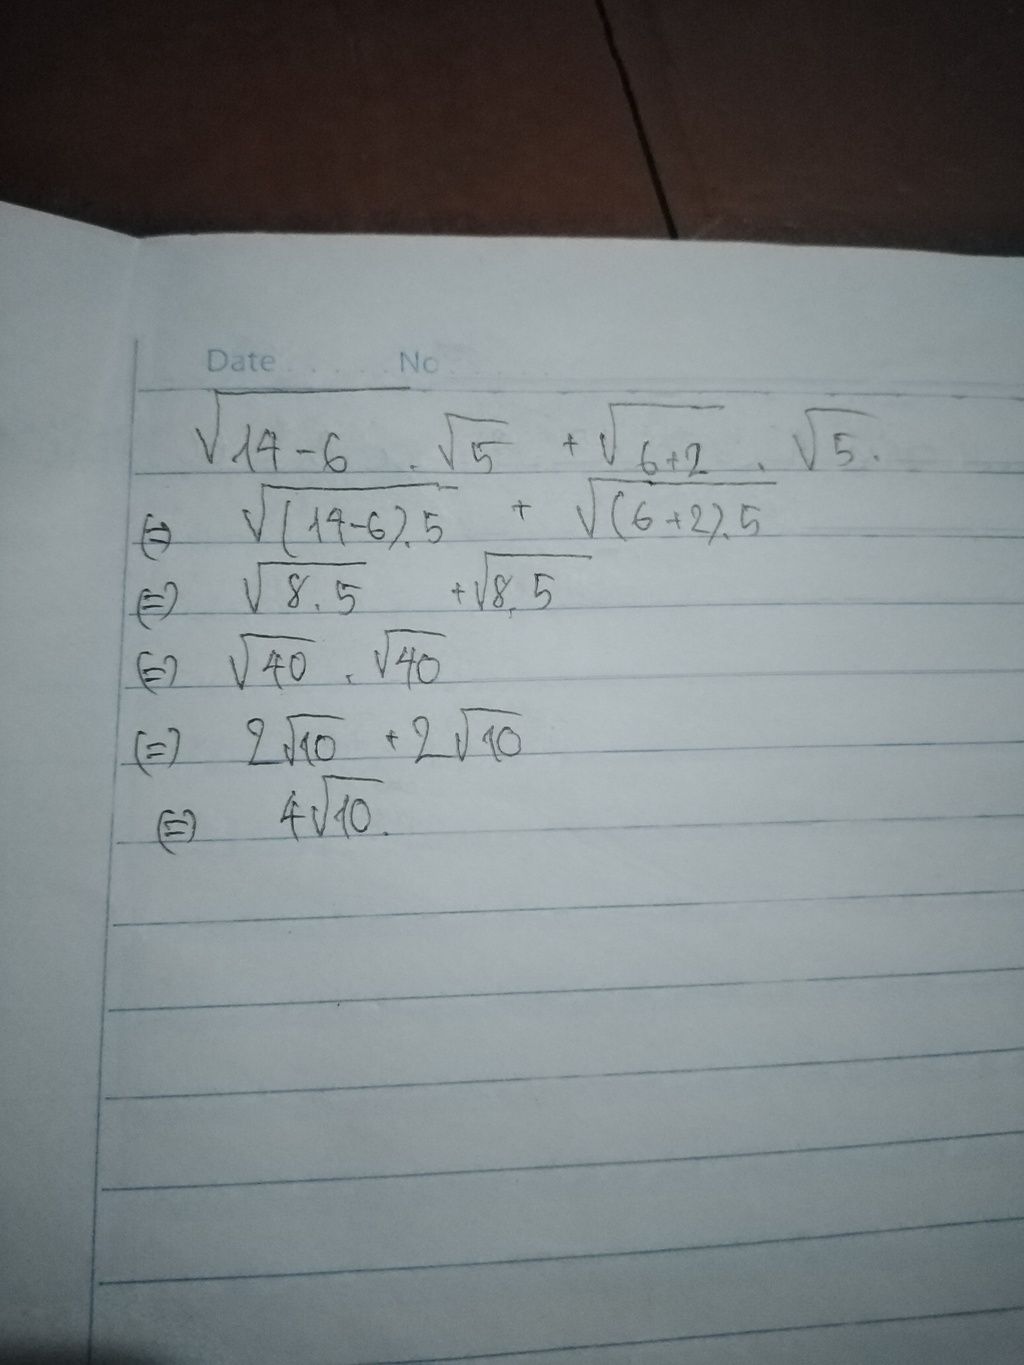 Date ..... No .....
√(14-6) . √5 + √(6+2) . √5.
(=) √((14-6).5) + √((6+2).5)
(=) √(8.5) + √(8.5)
(=) √40 . √40
(=) 2√10 + 2√10
(=) 4√10.